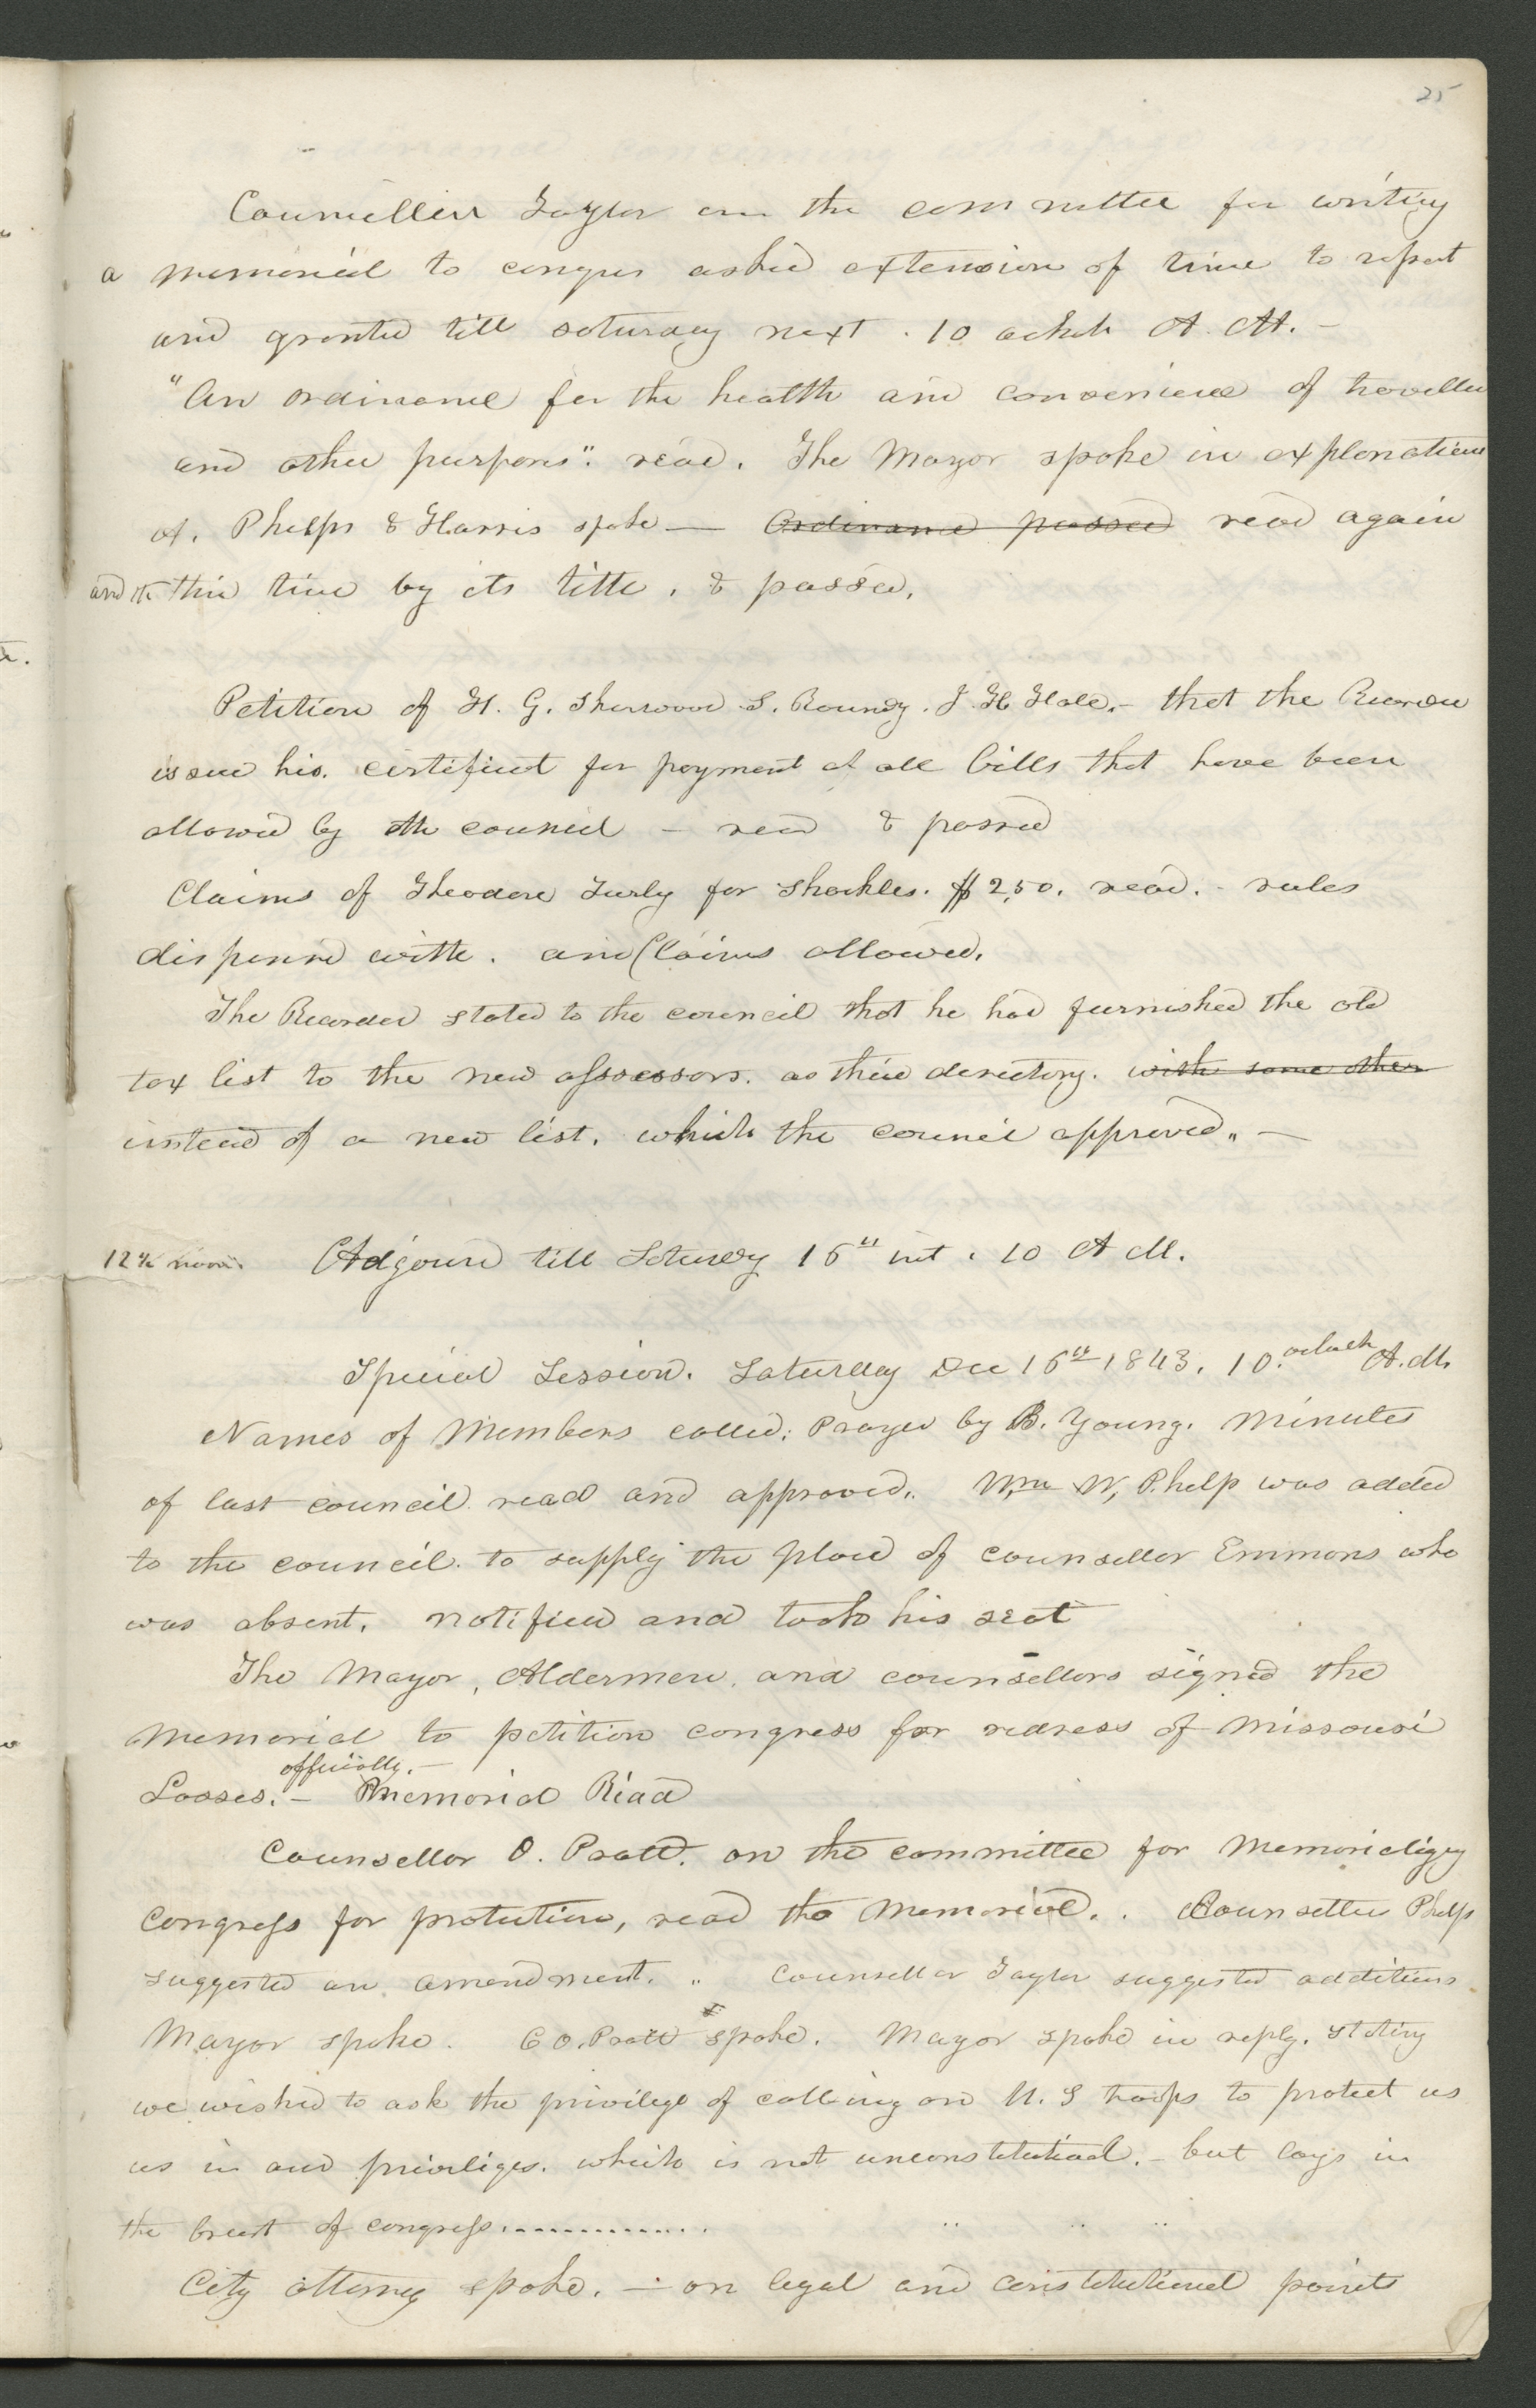 25
Councillor Taylor on the committee for writing
a memorial to congress asked extension of time to report
and granted till saturday next. 10 oclock A. M. —
"An ordinance for the health and convenience of traveller
and other purposes". read. The Mayor spoke in explanation
A. Phelps & Harris spoke — Ordinance passed read again
and the third time by its title, & passed.
Petition of H. G. Sherwood S. Roundy. J. H Hale.— that the Recorder
issue his. certificat for payment of all bills that have been
allowed by the council — read & passed
Claims of Theodore Turly for Shackles. $2,50. read. - rules
dispensed with. and Claims allowed.
The Recorder stated to the council that he had furnished the old
tax list to the new assessors. as their directory. with some other
instead of a new list. which the council approved. —
12 ¼ noon. Adjourd till Saturday 16th inst. 10 A M.
Special Session. Saturday Dec 16th 1843. 10. oclock A. M.
Names of Members called. Prayer by B. Young. Minutes
of last council read and approved. Wm W. Phelp was added
to the council. to supply the place of counsellor Emmons who
was absent. notified and took his seat
The Mayor, Aldermen, and counsellors signed the
memorial to petition congress for redress of Missouri
officially. —
Losses. — Memorial Read
Counsellor O. Pratt. on the committee for Memorializing
Congress for protection, read the memorial. . Counsellor Phelps
suggested an amendment. .. Counsellor Taylor suggested additions
Mayor spoke. C O. Pratt spoke. Mayor spoke in reply. stating
we wished to ask the privilege of calling on U. S troops to protect us
us in our priviliges. which is not unconstitutional. — but lays in
the breast of congress..............
City attorney spoke. — on legal and constitutional points